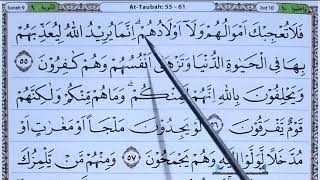 Surah 9 At-Taubah: 55 - 61 Juz 10
فَلَا تُعْجِبْكَ اَمْوَالُهُمْ وَلَآ اَوْلَادُهُمْ ۗ اِنَّمَا يُرِيْدُ اللّٰهُ لِيُعَذِّبَهُمْ
بِهَا فِى الْحَيٰوةِ الدُّنْيَا وَتَزْهَقَ اَنْفُسُهُمْ وَهُمْ كٰفِرُوْنَ ۝٥٥
وَيَحْلِفُوْنَ بِاللّٰهِ اِنَّهُمْ لَمِنْكُمْ ۗ وَمَا هُمْ مِّنْكُمْ وَلٰكِنَّهُمْ
قَوْمٌ يَّفْرَقُوْنَ ۝٥٦ لَوْ يَجِدُوْنَ مَلْجَاً اَوْ مَغٰرٰتٍ اَوْ
مُدَّخَلًا لَّوَلَّوْا اِلَيْهِ وَهُمْ يَجْمَحُوْنَ ۝٥٧ وَمِنْهُمْ مَّنْ يَّلْمِزُكَ